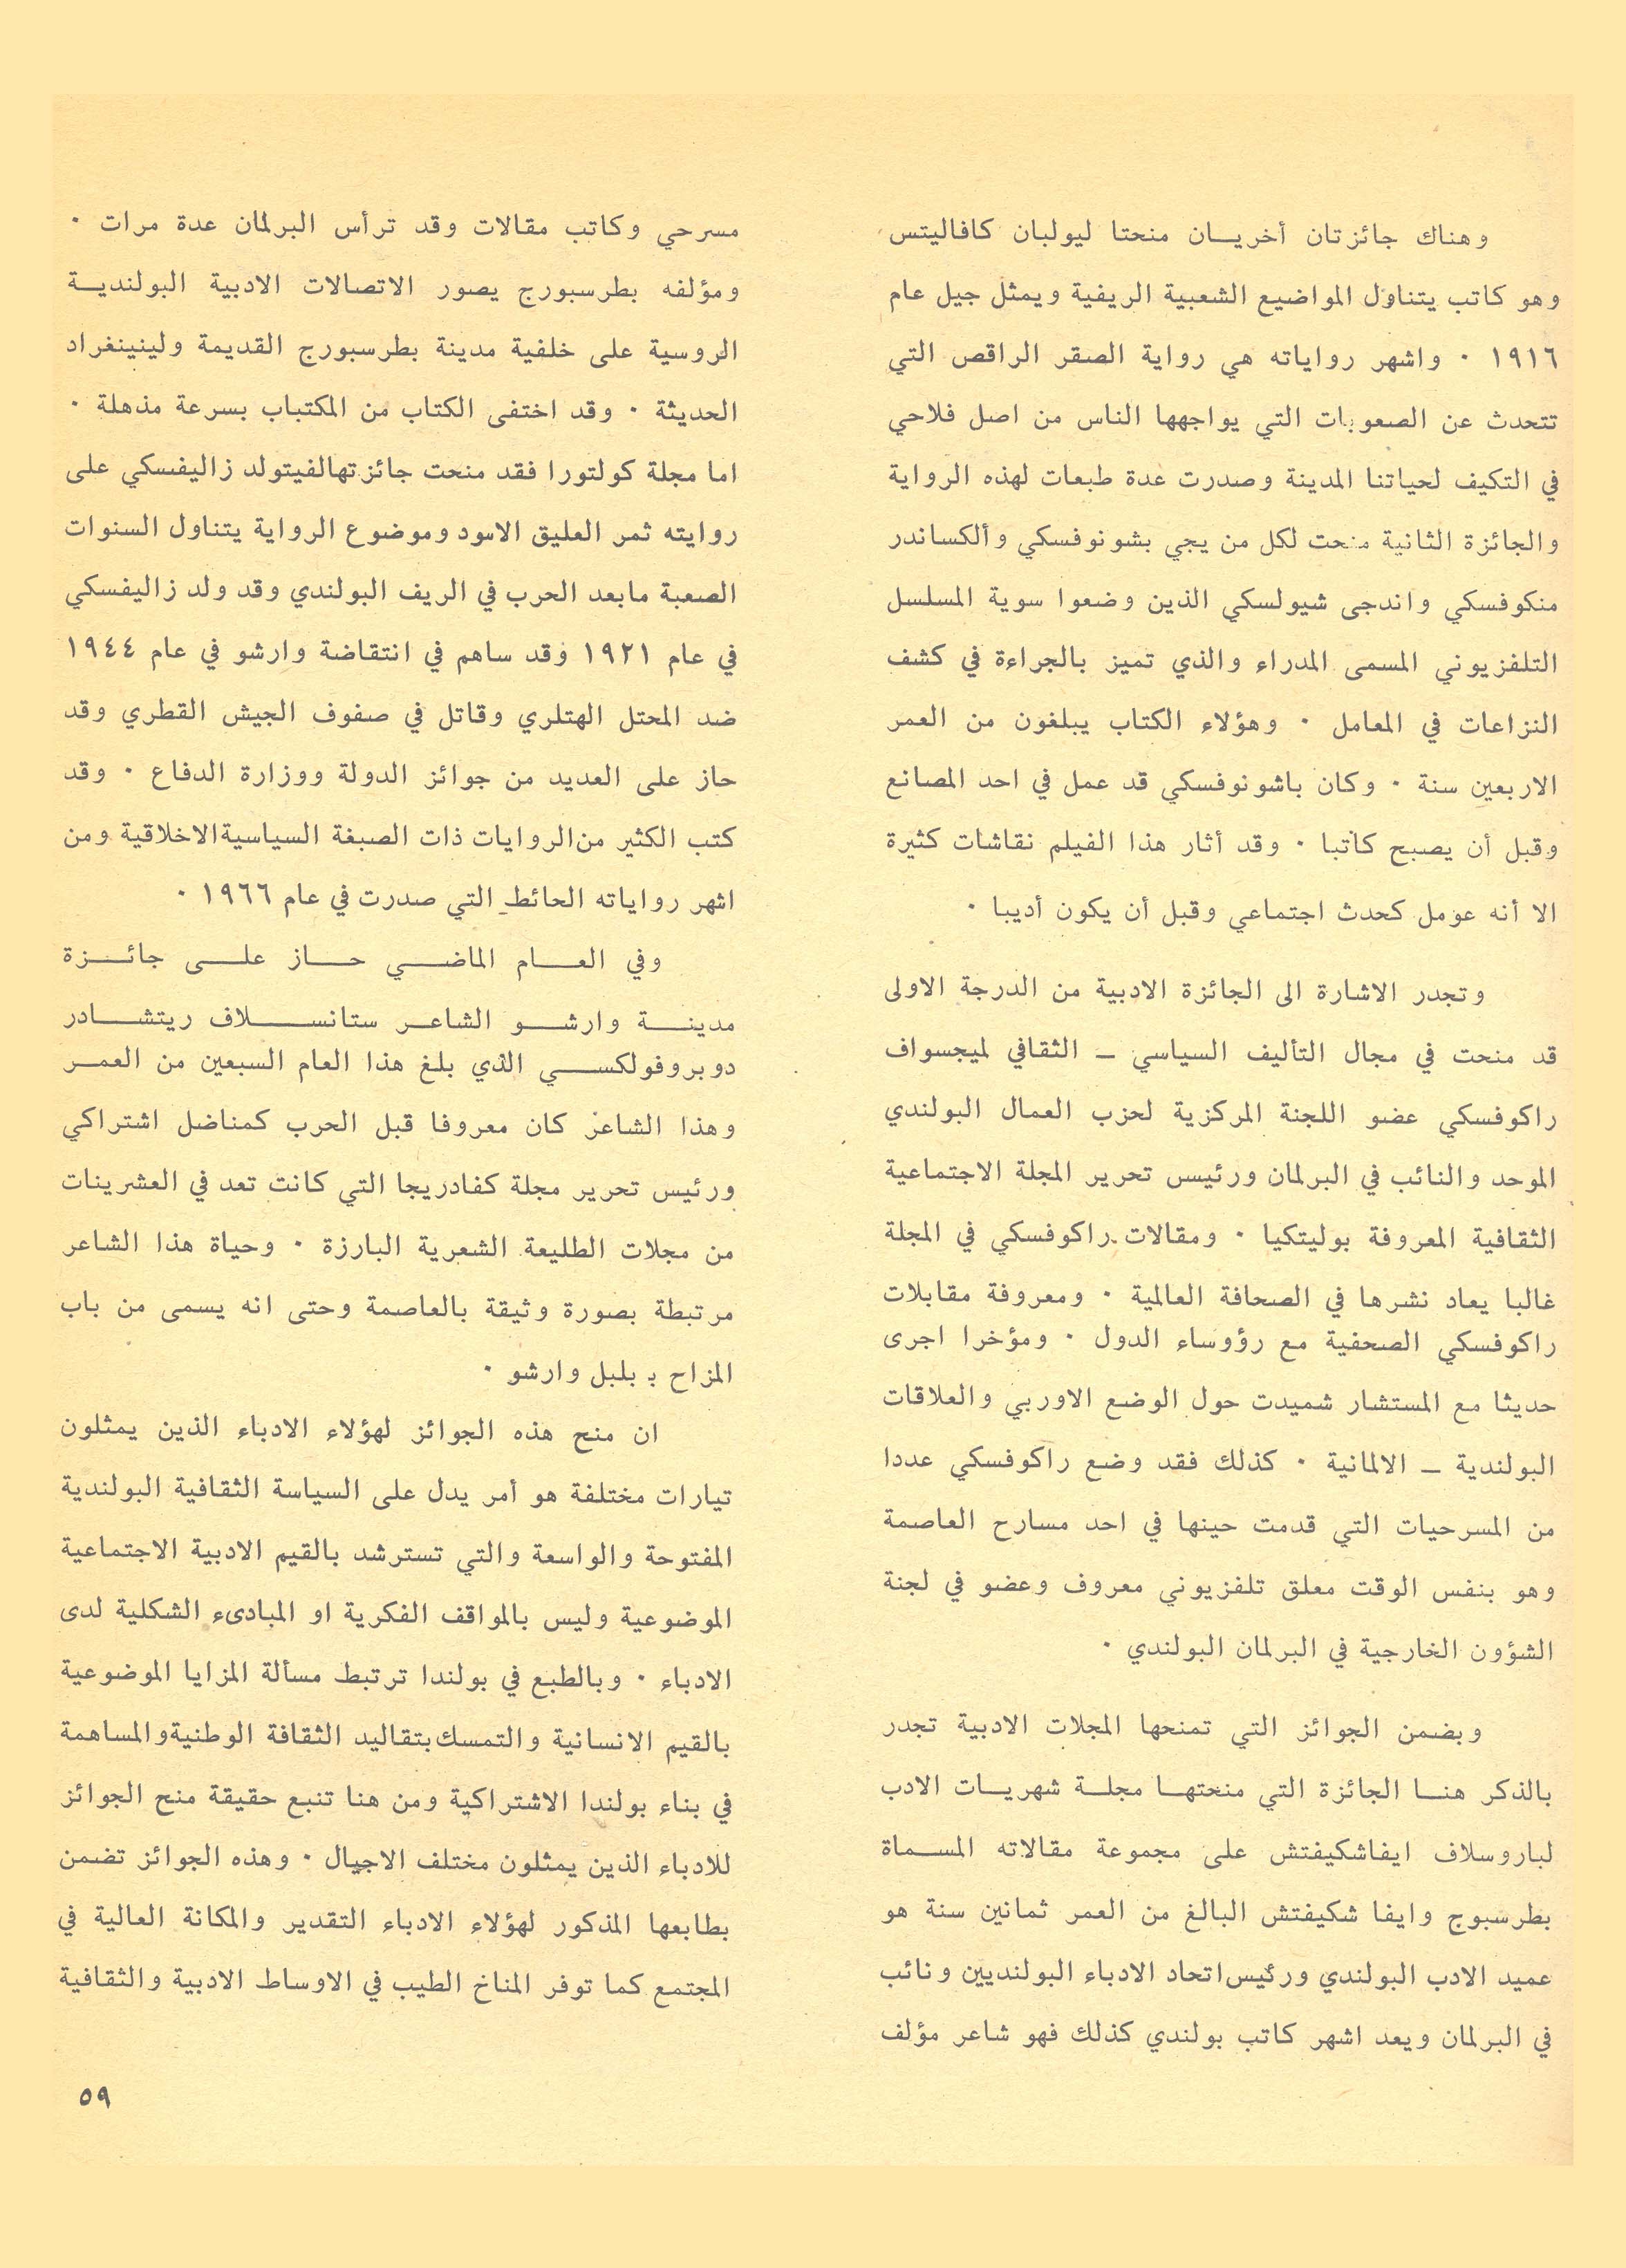 وهناك جائزتان أخريان منحتا ليولبان كافاليتس
وهو كاتب يتناول المواضيع الشعبية الريفية ويمثل جيل عام
١٩١٦ ٠ واشهر رواياته هي رواية الصقر الراقص التي
تتحدث عن الصعوبات التي يواجهها الناس من اصل فلاحي
في التكيف لحياتنا المدينة وصدرت عدة طبعات لهذه الرواية
والجائزة الثانية منحت لكل من يجي بشونوفسكي وألكساندر
منكوفسكي واندجى شيولسكي الذين وضعوا سوية المسلسل
التلفزيوني المسمى المدراء والذي تميز بالجراءة في كشف
النزاعات في المعامل ٠ وهؤلاء الكتاب يبلغون من العمر
الاربعين سنة ٠ وكان باشونوفسكي قد عمل في احد المصانع
وقبل أن يصبح كاتبا ٠ وقد أثار هذا الفيلم نقاشات كثيرة
الا أنه عومل كحدث اجتماعي وقبل أن يكون أديبا ٠
وتجدر الاشارة الى الجائزة الادبية من الدرجة الاولى
قد منحت في مجال التأليف السياسي ــ الثقافي لميجسواف
راكوفسكي عضو اللجنة المركزية لحزب العمال البولندي
الموحد والنائب في البرلمان ورئيس تحرير المجلة الاجتماعية
الثقافية المعروفة بوليتكيا ٠ ومقالات راكوفسكي في المجلة
غالبا يعاد نشرها في الصحافة العالمية ٠ ومعروفة مقابلات
راكوفسكي الصحفية مع رؤوساء الدول ٠ ومؤخرا اجرى
حديثا مع المستشار شميدت حول الوضع الاوربي والعلاقات
البولندية ــ الالمانية ٠ كذلك فقد وضع راكوفسكي عددا
من المسرحيات التي قدمت حينها في احد مسارح العاصمة
وهو بنفس الوقت معلق تلفزيوني معروف وعضو في لجنة
الشؤون الخارجية في البرلمان البولندي ٠
وبضمن الجوائز التي تمنحها المجلات الادبية تجدر
بالذكر هنا الجائزة التي منحتها مجلة شهريات الادب
لباروسلاف ايفاشكيفتش على مجموعة مقالاته المسماة
بطرسبوج وايفا شكيفتش البالغ من العمر ثمانين سنة هو
عميد الادب البولندي ورئيس اتحاد الادباء البولنديين ونائب
في البرلمان ويعد اشهر كاتب بولندي كذلك فهو شاعر مؤلف
مسرحي وكاتب مقالات وقد ترأس البرلمان عدة مرات ٠
ومؤلفه بطرسبورج يصور الاتصالات الادبية البولندية
الروسية على خلفية مدينة بطرسبورج القديمة ولينينغراد
الحديثة ٠ وقد اختفى الكتاب من المكتباب بسرعة مذهلة ٠
اما مجلة كولتورا فقد منحت جائزتهالفيتولد زاليفسكي على
روايته ثمر العليق الاسود وموضوع الرواية يتناول السنوات
الصعبة مابعد الحرب في الريف البولندي وقد ولد زاليفسكي
في عام ١٩٢١ وقد ساهم في انتقاضة وارشو في عام ١٩٤٤
ضد المحتل الهتلري وقاتل في صفوف الجيش القطري وقد
حاز على العديد من جوائز الدولة ووزارة الدفاع ٠ وقد
كتب الكثير من الروايات ذات الصبغة السياسية الاخلاقية ومن
اشهر رواياته الحائط التي صدرت في عام ١٩٦٦ ٠
وفي العام الماضي حاز على جائزة
مدينة وارشو الشاعر ستانسلاف ريتشادر
دوبروفولكسي الذي بلغ هذا العام السبعين من العمر
وهذا الشاعر كان معروفا قبل الحرب كمناضل اشتراكي
ورئيس تحرير مجلة كفادريجا التي كانت تعد في العشرينات
من مجلات الطليعة الشعرية البارزة ٠ وحياة هذا الشاعر
مرتبطة بصورة وثيقة بالعاصمة وحتى انه يسمى من باب
المزاح بـ بلبل وارشو ٠
ان منح هذه الجوائز لهؤلاء الادباء الذين يمثلون
تيارات مختلفة هو أمر يدل على السياسة الثقافية البولندية
المفتوحة والواسعة والتي تسترشد بالقيم الادبية الاجتماعية
الموضوعية وليس بالمواقف الفكرية او المبادىء الشكلية لدى
الادباء ٠ وبالطبع في بولندا ترتبط مسألة المزايا الموضوعية
بالقيم الانسانية والتمسك بتقاليد الثقافة الوطنية والمساهمة
في بناء بولندا الاشتراكية ومن هنا تنبع حقيقة منح الجوائز
للادباء الذين يمثلون مختلف الاجيال ٠ وهذه الجوائز تضمن
بطابعها المذكور لهؤلاء الادباء التقدير والمكانة العالية في
المجتمع كما توفر المناخ الطيب في الاوساط الادبية والثقافية
٥٩